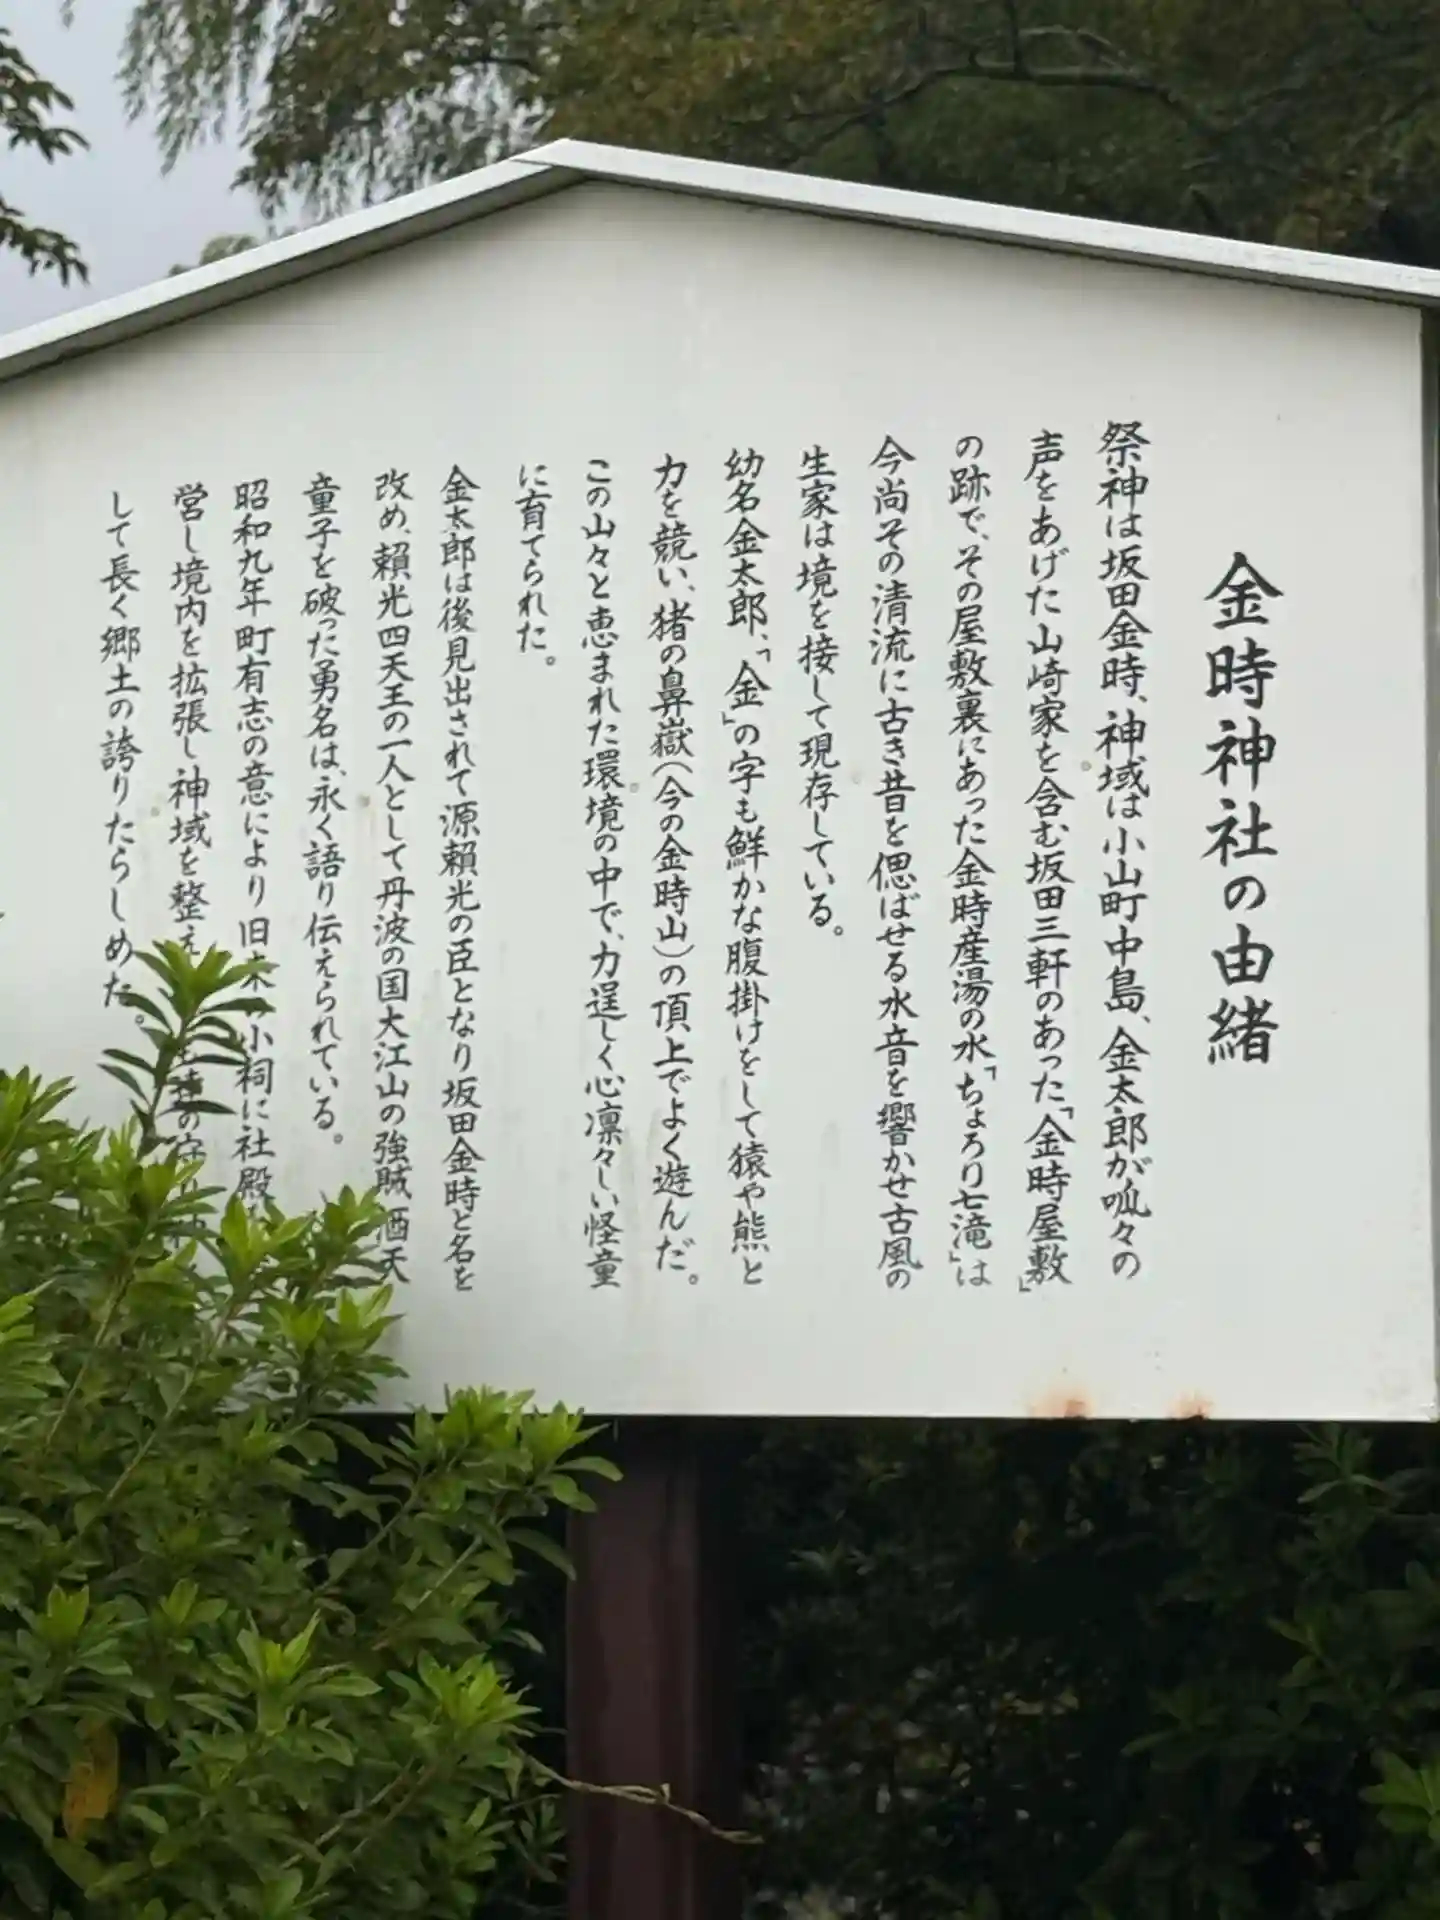 金時神社の由緒
祭神は坂田金時、神域は小山町中島、金太郎が呱々の
声をあげた山崎家を含む坂田三軒のあった「金時屋敷」
の跡で、その屋敷裏にあった金時産湯の水「ちょろり七滝」は
今尚その清流に古き昔を偲ばせる水音を響かせ古風の
生家は境を接して現存している。
幼名金太郎、「金」の字も鮮かな腹掛けをして猿や熊と
力を競い、猪の鼻嶽(今の金時山)の頂上でよく遊んだ。
この山々と恵まれた環境の中で、力逞しく心凛々しい怪童
に育てられた。
金太郎は後見出されて源頼光の臣となり坂田金時と名を
改め、頼光四天王の一人として丹波の国大江山の強賊酒天
童子を破った勇名は、永く語り伝えられている。
昭和九年町有志の意により旧来の小祠に社殿
営し境内を拡張し神域を整え
して長く郷土の誇りたらしめた。